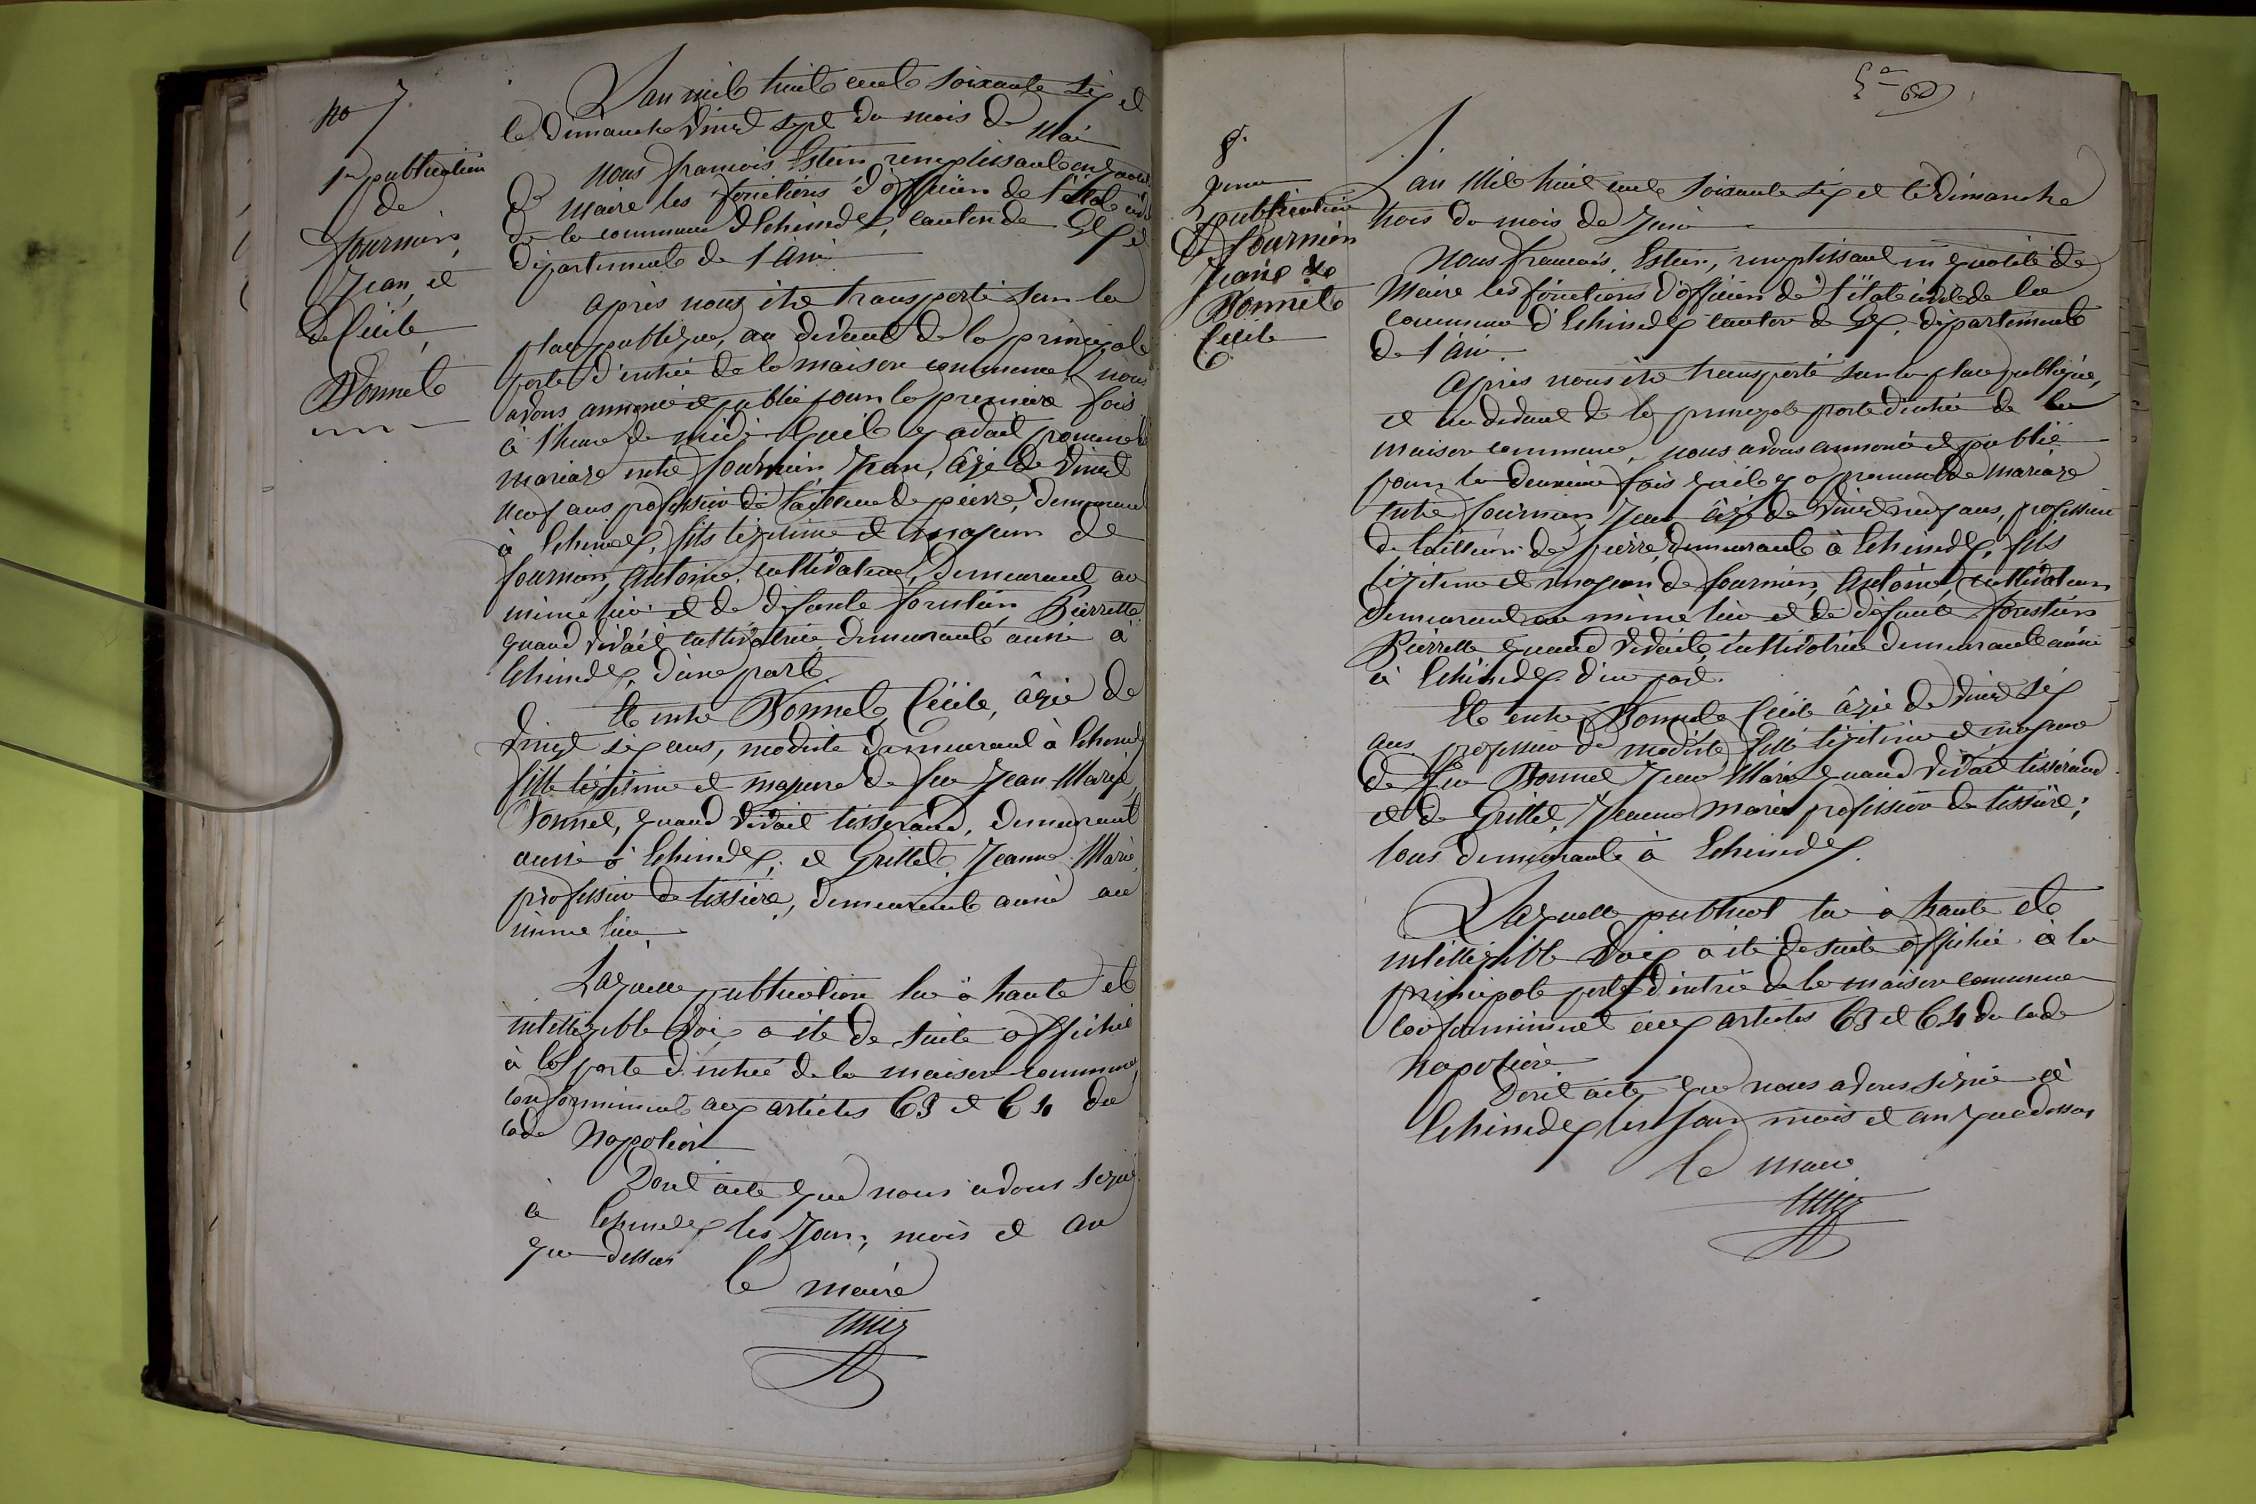 no 7
1re publication
de
fournier,
Jean, et
de Cécile,
Vonnet
L'an mil huit cent soixante six et
le dimanche vingt sept du mois de Mai
Nous françois Estier remplissant en qualité
de Maire les fonctions d'officier de l'état civil
de la commune d'Echenevex, canton de Gex et
département de l'Ain
après nous être transporté sur la
place publique, au devant de la principale
porte d'entrée de la maison commune, nous
avons annoncé et publié pour la première fois
à l'heure de midi qu'il y avait promesse de
mariage entre fournier, Jean, âgé de vingt
neuf ans profession de tailleur de pierre, demeurant
à Echenevex, fils légitime et majeur de
fournier, Antoine, cultivateur, demeurant au
même lieu et de défunte forestier Pierrette
quand vivait cultivatrice demeurante aussi à
Echenevex, d'une part.
Et entre Vonnet, Cécile, âgée de
vingt six ans, modiste demeurant à Echenevex
fille légitime et majeure de feu Jean Marie
Vonnet, quand vivait tisserand, demeurant
aussi à Echenevex; et Grillet, Jeanne Marie,
profession de tissière, demeurant aussi au
même lieu.
Laquelle publication lue à haute et
intelligible voix a été de suite affichée
à la porte d'entrée de la maison commune,
conformément aux articles 63 et 64 du
code Napoléon
Dont acte que nous avons signé
à Echenevex les jour, mois et an
que dessus
le maire
8.
2eme
publication
de fournier
Jean et de
Vonnet
Cécile
L'an Mil huit cent soixante six et le dimanche
trois du mois de Juin
Nous francois, Estier, remplissant en qualité de
Maire les fonctions d'officier de l'état civil de la
commune d'Echenevex canton de Gex, département
de l'Ain.
Après nous être transporté sur la place publique,
et au devant de la principale porte d'entrée de la
maison commune, nous avons annoncé et publié
pour la deuxième fois qu'il y a promesse de mariage
entre fournier, Jean âgé de vingt neuf ans, profession
de tailleur de pierre, demeurant à Echenevex, fils
légitime et majeur de fournier, Antoine, cultivateur
demeurant au même lieu et de défunte forestier
Pierrette quand vivait, cultivatrice demeurante aussi
à Echenevex d'une part.
Et entre Vonnet Cécile âgée de vingt six
ans profession de modiste fille légitime et majeure
de feu Vonnet Jean Marie quand vivait tisserand
et de Grillet, Jeanne Marie profession de tissière;
tous demeurant à Echenevex.
Laquelle publicat lue à haute et
intelligible voix a été de suite affichée à la
principale porte d'entrée de la maison commune
conformément aux articles 63 et 64 du code
Napoléon
Dont acte que nous avons signé à
Echenevex les jour mois et an que dessus
le maire